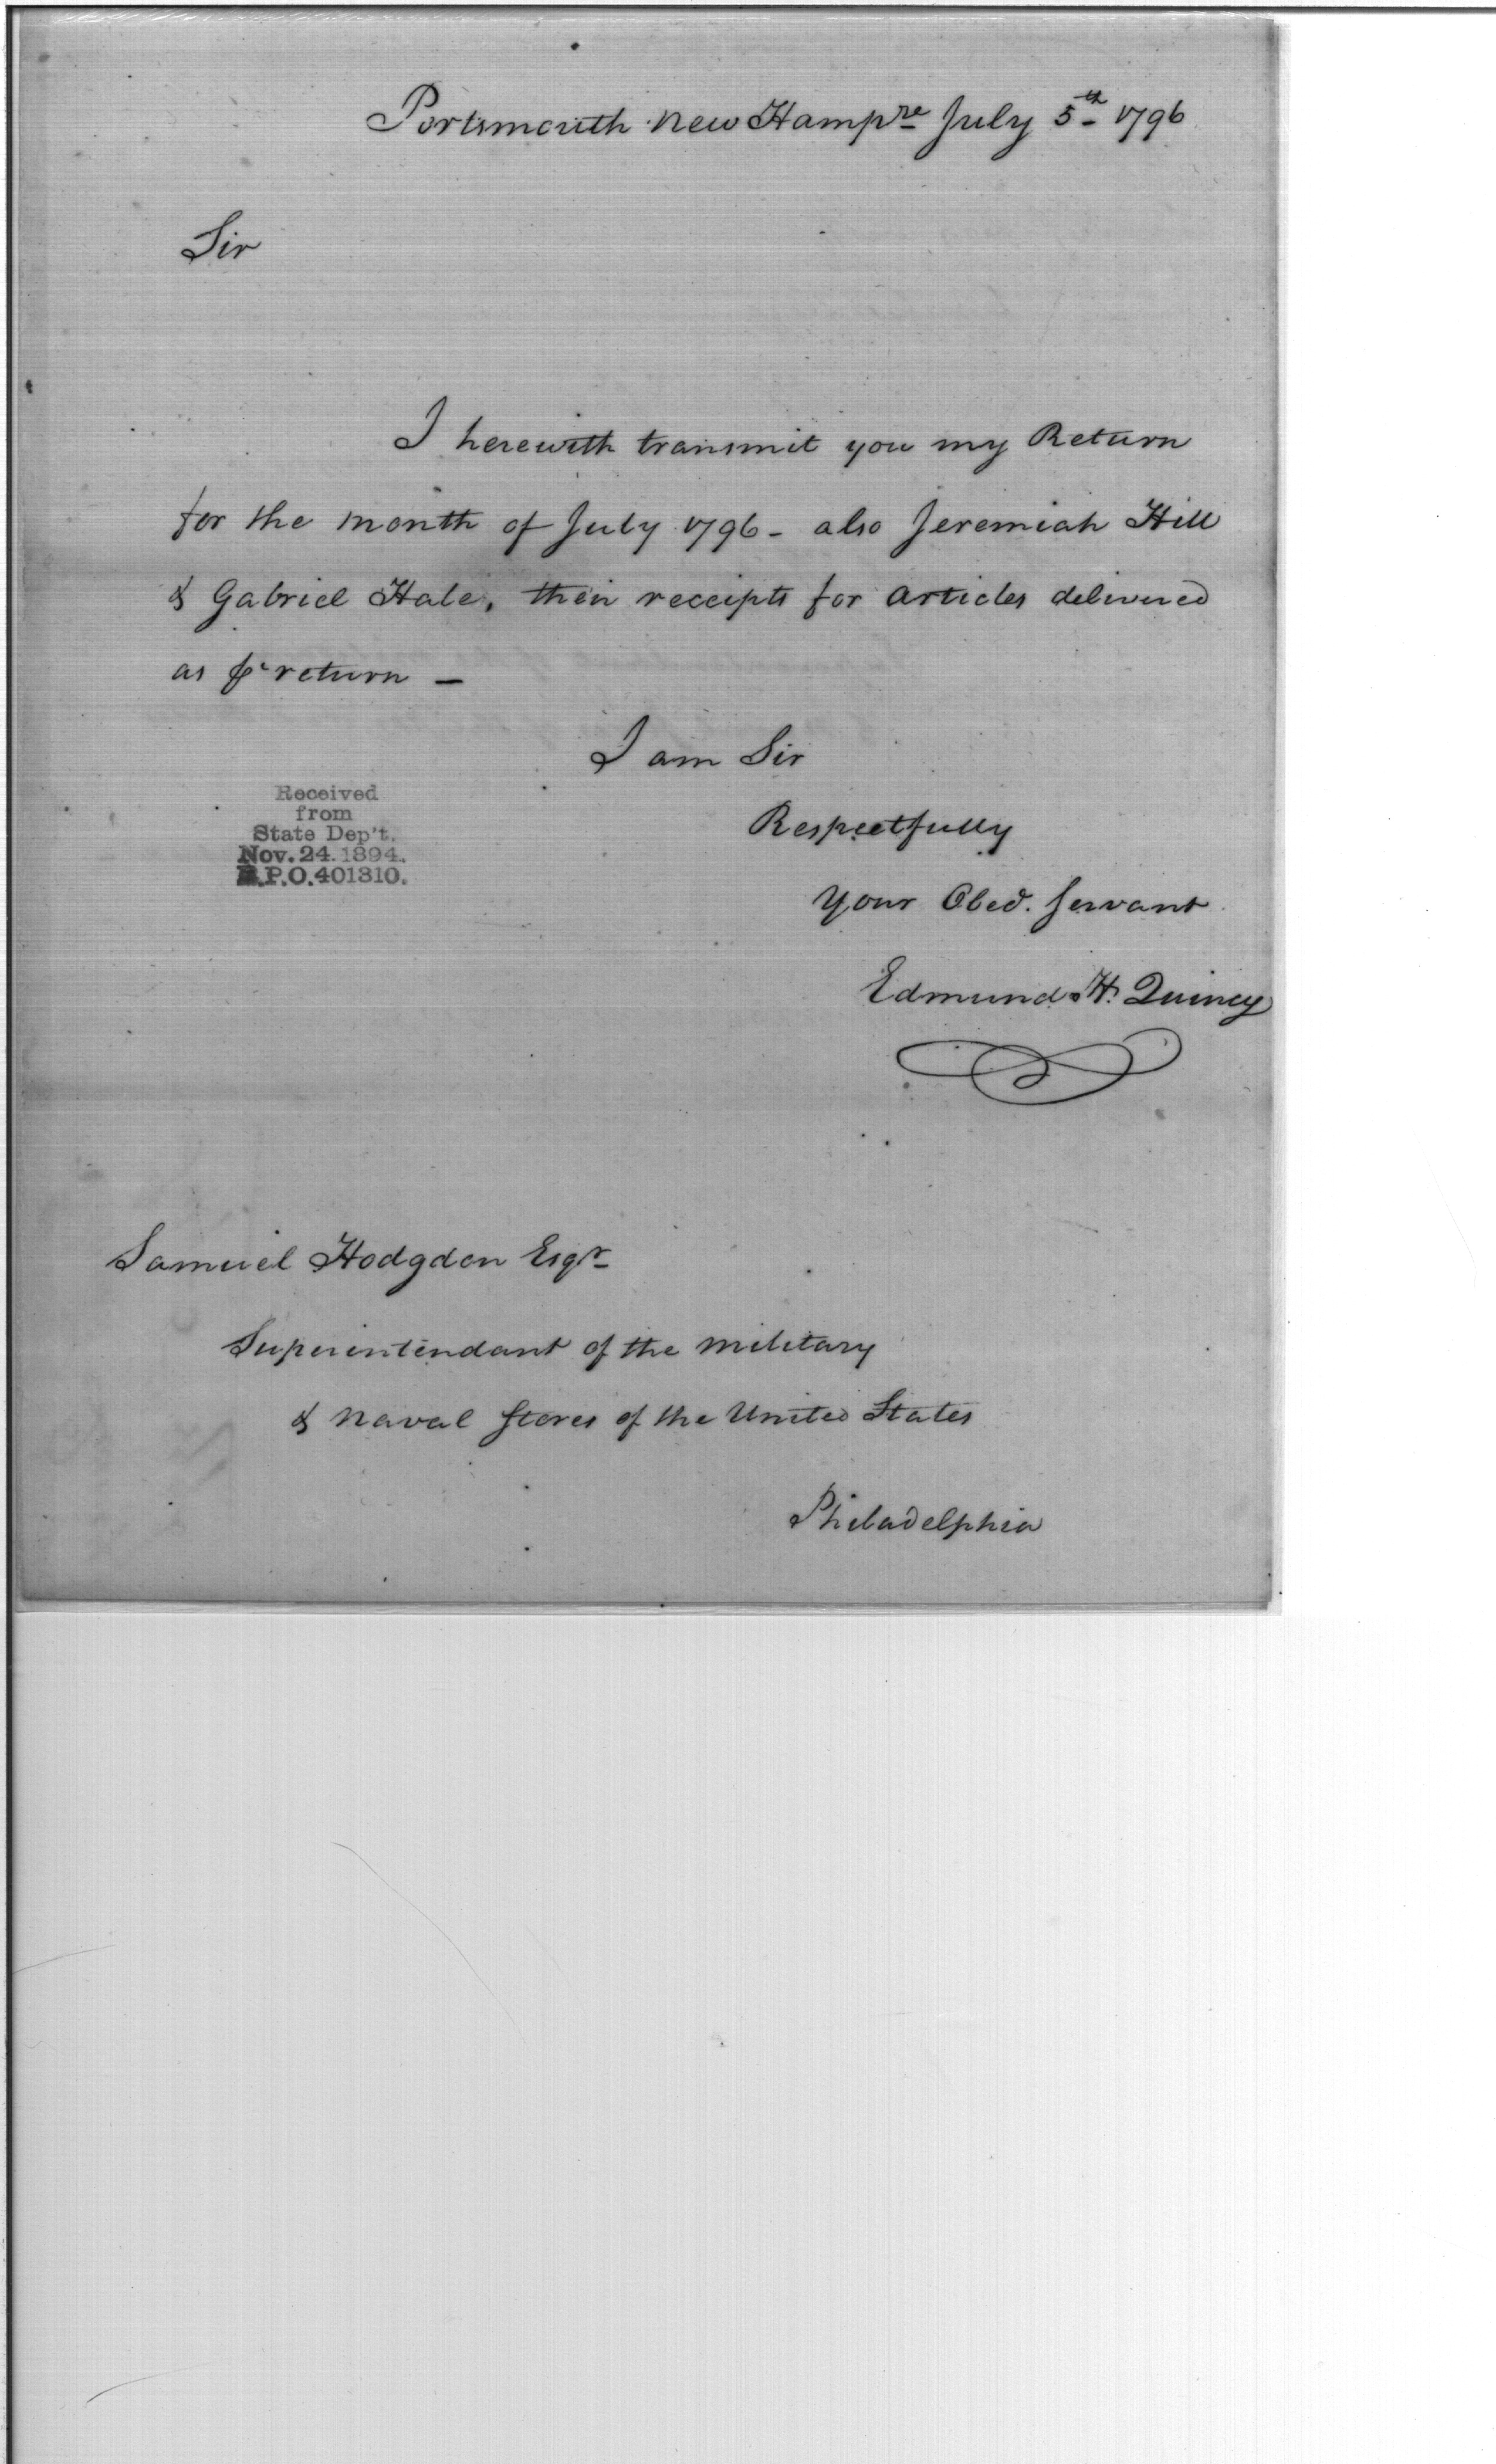 Portsmouth New Hampre July 5th 1796
Sir
I herewith transmit you my Return
for the month of July 1796 - also Jeremiah Hill
& Gabriel Hale, their receipts for articles delivered
as pr return -
I am Sir
Respectfully
Your Obed. Servant
Edmund H. Quincy
Received
from
State Dep't.
Nov. 24. 1894.
R.P.O. 401310.
Samuel Hodgdon Esqr
Superintendant of the military
& naval Stores of the United States
Philadelphia